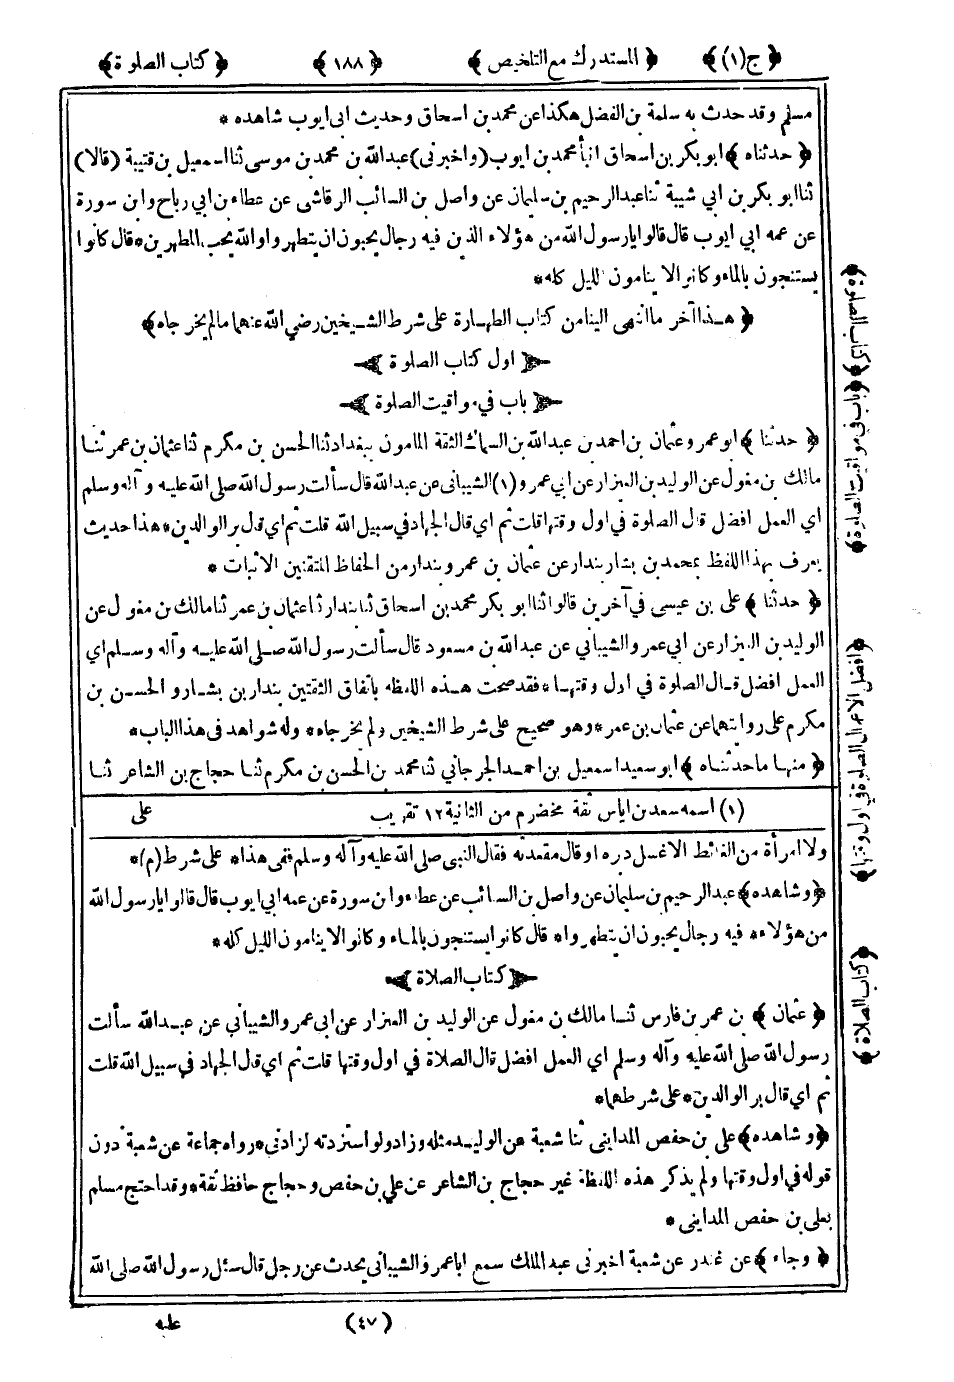 ﴿ ج(١) ﴾ ﴿ المستدرك مع التلخيص ﴾ ﴿ ١٨٨ ﴾ ﴿ كتاب الصلوة ﴾
مسلم وقد حدث به سلمة بن الفضل هكذا عن محمد بن اسحاق وحديث ابى ايوب شاهده *
﴿ حدثناه ﴾ ابو بكر بن اسحاق انبأ محمد بن ايوب (واخبرنى) عبد الله بن محمد بن موسى ثنا اسمعيل بن قتيبة (قالا)
ثنا ابو بكر بن ابي شيبة ثنا عبد الرحيم بن سليمان عن واصل بن السائب الرقاشى عن عطاء بن ابي رباح وابن سورة
عن عمه ابي ايوب قال قالوا يا رسول الله من هؤلاء الذين فيه رجال يحبون ان يتطهروا والله يحب المطهرين * قال كانوا
يستنجون بالماء وكانوا لا ينامون الليل كله *
﴿ هذا آخر ما انتهى الينا من كتاب الطهارة على شرط الشيخين رضي الله عنهما مما لم يخرجاه ﴾
اول كتاب الصلوة
باب في مواقيت الصلوة
﴿ حدثنا ﴾ ابو عمرو عثمان بن احمد بن عبد الله بن السماك الثقة المامون ببغداد ثنا الحسن بن مكرم ثنا عثمان بن عمر ثنا
مالك بن مغول عن الوليد بن العيزار عن ابي عمرو (١) الشيبانى عن عبد الله قال سألت رسول الله صلى الله عليه وآله وسلم
اي العمل افضل قال الصلوة في اول وقتها قلت ثم اي قال الجهاد في سبيل الله قلت ثم اي قال بر الوالدين * هذا حديث
يعرف بهذا اللفظ بمحمد بن بشار بندار عن عثمان بن عمر وبندار من الحفاظ المتقنين الاثبات *
﴿ حدثنا ﴾ على بن عيسى في آخرين قالوا ثنا ابو بكر محمد بن اسحاق ثنا بندار ثنا عثمان بن عمر ثنا مالك بن مغول عن
الوليد بن العيزار عن ابي عمرو الشيباني عن عبد الله بن مسعود قال سألت رسول الله صلى الله عليه وآله وسلم اي
العمل افضل قال الصلوة في اول وقتها * فقد صحت هذه اللفظة باتفاق الثقتين بندار بن بشار والحسن بن
مكرم على روايتهما عن عثمان بن عمر * وهو صحيح على شرط الشيخين ولم يخرجاه * وله شواهد في هذا الباب *
﴿ منها ما حدثناه ﴾ ابو سعيد اسمعيل بن احمد الجرجاني ثنا محمد بن الحسن بن مكرم ثنا حجاج بن الشاعر ثنا
(١) اسمه سعد بن اياس ثقة مخضرم من الثانية ١٢ تقريب على
ولا امرأة من الغائط الا غسل دبره او قال مقعدته فقال النبى صلى الله عليه وآله وسلم ففى هذا * على شرط (م) *
﴿ وشاهده ﴾ عبد الرحيم بن سليمان عن واصل بن السائب عن عطاء وابن سورة عن عمه ابي ايوب قال قالوا يا رسول الله
من هؤلاء * فيه رجال يحبون ان يتطهروا * قال كانوا يستنجون بالماء وكانوا لا ينامون الليل كله *
كتاب الصلاة
﴿ عثمان ﴾ بن عمر بن فارس ثنا مالك بن مغول عن الوليد بن العيزار عن ابي عمرو الشيباني عن عبد الله سألت
رسول الله صلى الله عليه وآله وسلم اي العمل افضل قال الصلاة في اول وقتها قلت ثم اي قال الجهاد في سبيل الله قلت
ثم اي قال بر الوالدين * على شرطهما *
﴿ وشاهده ﴾ على بن حفص المداينى ثنا شعبة عن الوليد مثله وزاد ولو استزدته لزادنى * رواه جماعة عن شعبة دون
قوله في اول وقتها ولم يذكر هذه اللفظة غير حجاج بن الشاعر عن علي بن حفص وحجاج حافظ ثقة * وقد احتج مسلم
بعلى بن حفص المداينى *
﴿ وجاء ﴾ عن غندر عن شعبة اخبرنى عبد الملك سمع ابا عمرو الشيبانى يحدث عن رجل قال سئل رسول الله صلى الله
(٤٧) عليه
﴿ كتاب الصلوة ﴾ ﴿ باب في مواقيت الصلوة ﴾
﴿ افضل الاعمال الصلوة في اول وقتها ﴾
﴿ كتاب الصلاة ﴾